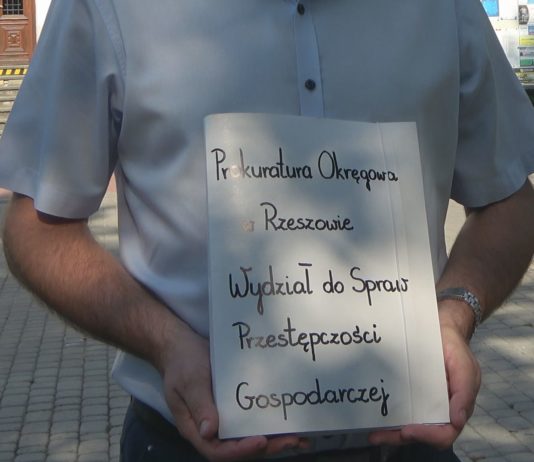 Prokuratura Okręgowa
w Rzeszowie
Wydział do Spraw
Przestępczości
Gospodarczej